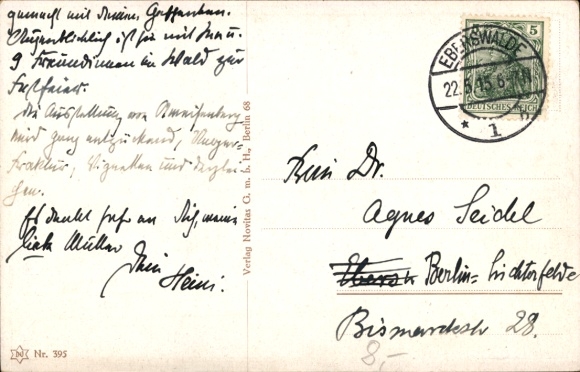 gemacht mit Deinen
Augenblicklich ist sie mit Frau
9 Freundinnen im Wald zur
Festfeier.
Die Ausstattung von
wird ganz entzückend, Unger-
Fraktur, Vignetten und derglei-
chen.
Es denkt sehr an Dich, meine
liebe Mutter
Dein
Heini.
Verlag Novitas G. m. b. H., Berlin 68
Nr. 395
5
DEUTSCHES REICH
EBERSWALDE
22.5.15.6-7N
* 1
Frau Dr.
Agnes Seidel
Berlin-Lichterfelde
Bismarckstr 28.
8,-